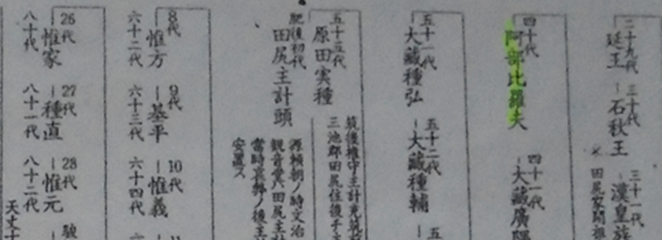 二十九代 三十代 三十一代
延王 石秋王 漢皇族
田尻家開祖
四十代 四十一代
阿部比羅夫 大藏廣隅
五十一代 五十二代 五
大藏種弘 大藏種輔
五十三代
原田実種
肥後初代
田尻主計頭
筑後権守主計允
三池郎田尻住後
源頼朝ノ時文治
観音堂六田尻主計
当時哀弊ノ後主
安置ス
8代 9代 10代
惟方 基平 惟義
六十二代 六十三代 六十四代
26代 27代 28代
惟家 種直 惟元
八十代 八十一代 八十二代
天文十